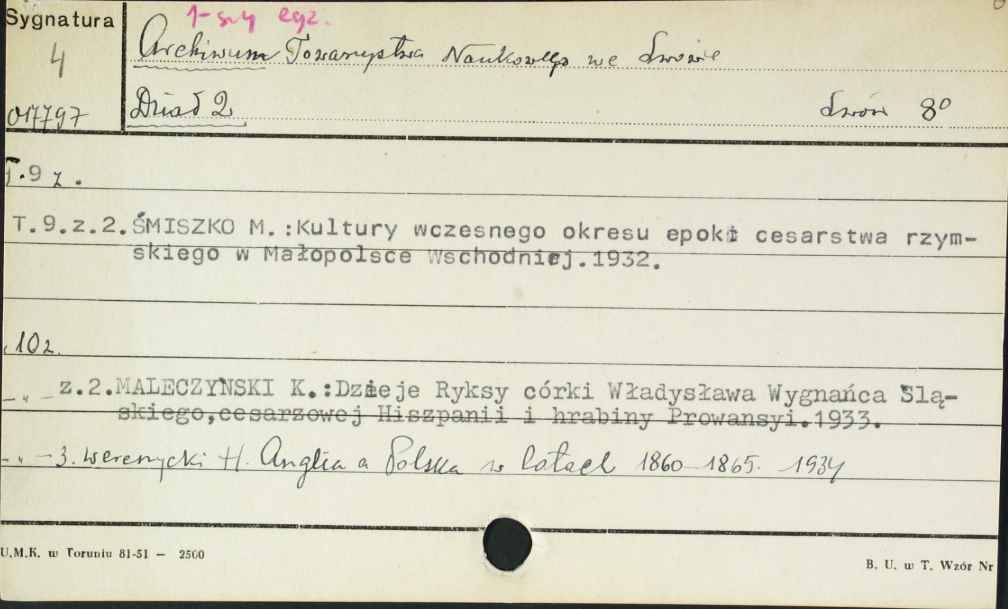 Sygnatura
1-szy egz.
4
Archiwum Towarzystwa Naukowego we Lwowie
017797
Dział 2
Lwów 8°
T.9 z.
T.9.z.2.ŚMISZKO M.:Kultury wczesnego okresu epoki cesarstwa rzym-
skiego w Małopolsce Wschodniej.1932.
10z.
-"- z.2.MALECZYŃSKI K.:Dzieje Ryksy córki Władysława WygnańcaŚlą-
skiego,cesarzowej Hiszpanii i hrabiny Prowansyi.1933.
-"- 3. Werenycki H. Anglia a Polska w latach 1860-1865. 1934
U.M.K. w Toruniu 81-51 — 2500
B. U. w T. Wzór Nr